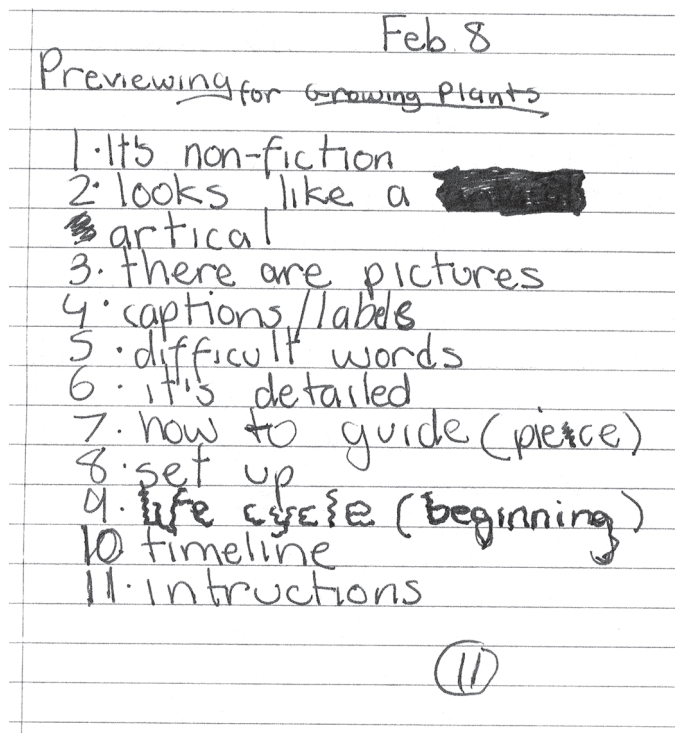 Feb. 8
Previewing for Growing Plants
1. It's non-fiction
2. looks like a
artical
3. there are pictures
4. captions/labels
5. difficult words
6. it's detailed
7. how to guide (piece)
8. set up
9. life cycle (beginning)
10 timeline
11. intructions
11